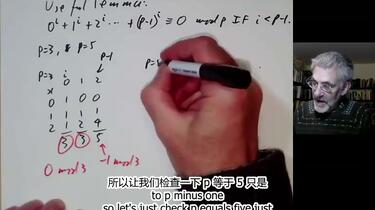 Useful lemma:
0^i + 1^i + 2^i ... + (p-1)^i ≡ 0 mod p IF i < p-1.
p=3, & p=5
p-1
p=3 i 0 1 2
x
0 1 0 0
1 1 1 1
2 1 2 4
3 3 5
0 mod 3 -1 mod 3
所以让我们检查一下 p 等于 5 只是
to p minus one
so let's just check p equals five just